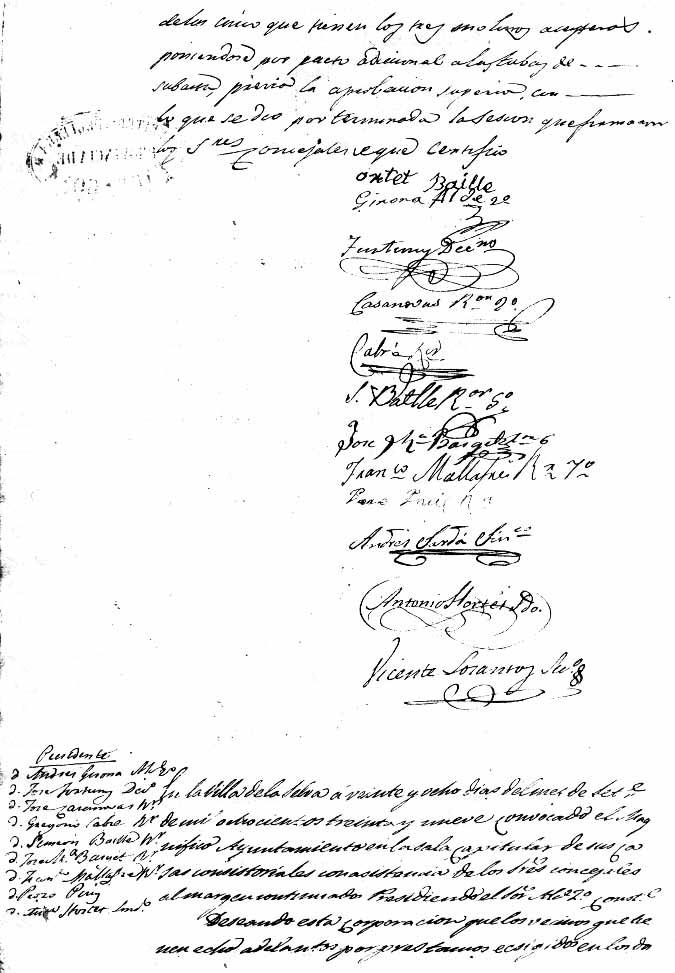 de los cinco que tienen los tres molinos aceyteros.
poniendose por pacto adicional a las tabas de
subasta, previa la aprobacion superior, con
lo que se dio por terminada la sesion que firmaron
los S.res Concejales de que Certifico
ontet Baille
Girona Al.de 2º
Fortuny Dec.no
Casanovas R.or 2º
Cabré Rer
S. Batlle R.or 5º
Jose M.a Barget R.or 6
Fran.co Mallafré R.r 7º
Pere Puig R.r
Andres Sardá Sín.co
Antonio Hortet Sdo.
Vicente Sorantoz Scr.º
Presidente
D. Andres Girona Al. 2º
D. Jose Fortuny Dec.º
D. Jose Casanovas R.r
D. Gregorio Cabre R.r
D. Simeon Batlle R.r
D. Jose M.a Barget R.r
D. Fran.co Mallafre R.r
D. Pedro Puig
D. Juan Hortet Sind.º
En la Villa de la Selva á veinte y ocho dias del mes de
de mil ochocientos treinta y nueve convocado el Mag
nifico Ayuntamiento en la sala capitular de sus ca
sas consistoriales con asistencia de los Sres concejales
al margen continuados Presidiendo el Sor Alc. 2º Const.l
Deseando esta corporacion que los vecinos que tie
nen echo adelantos por prestamos ecsigidos en los do